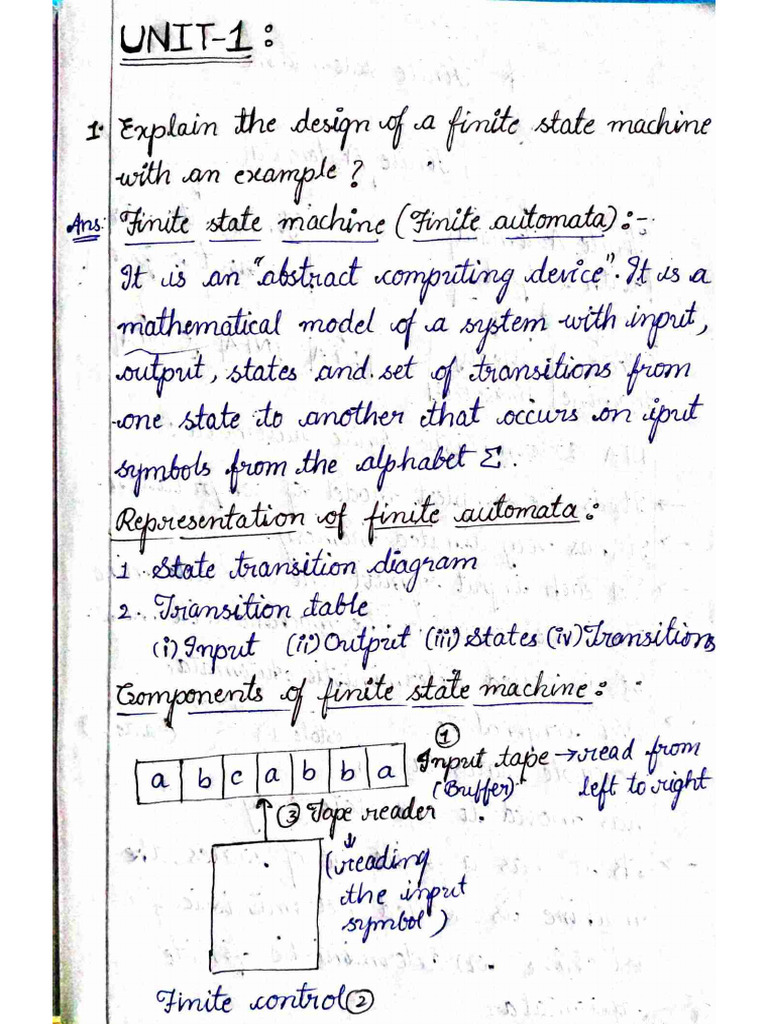 UNIT-1:
1. Explain the design of a finite state machine
with an example?
Ans: Finite state machine (Finite automata):-
It is an "abstract computing device". It is a
mathematical model of a system with input,
output, states and set of transitions from
one state to another that occurs on iput
symbols from the alphabet Σ.
Representation of finite automata:
1. State transition diagram
2. Transition table
(i) Input (ii) Output (iii) States (iv) Transitions
Components of finite state machine:
a b c a b b a
① Input tape → read from
(Buffer) left to right
③ Tape reader
↓
(reading
the input
symbol)
Finite control ②